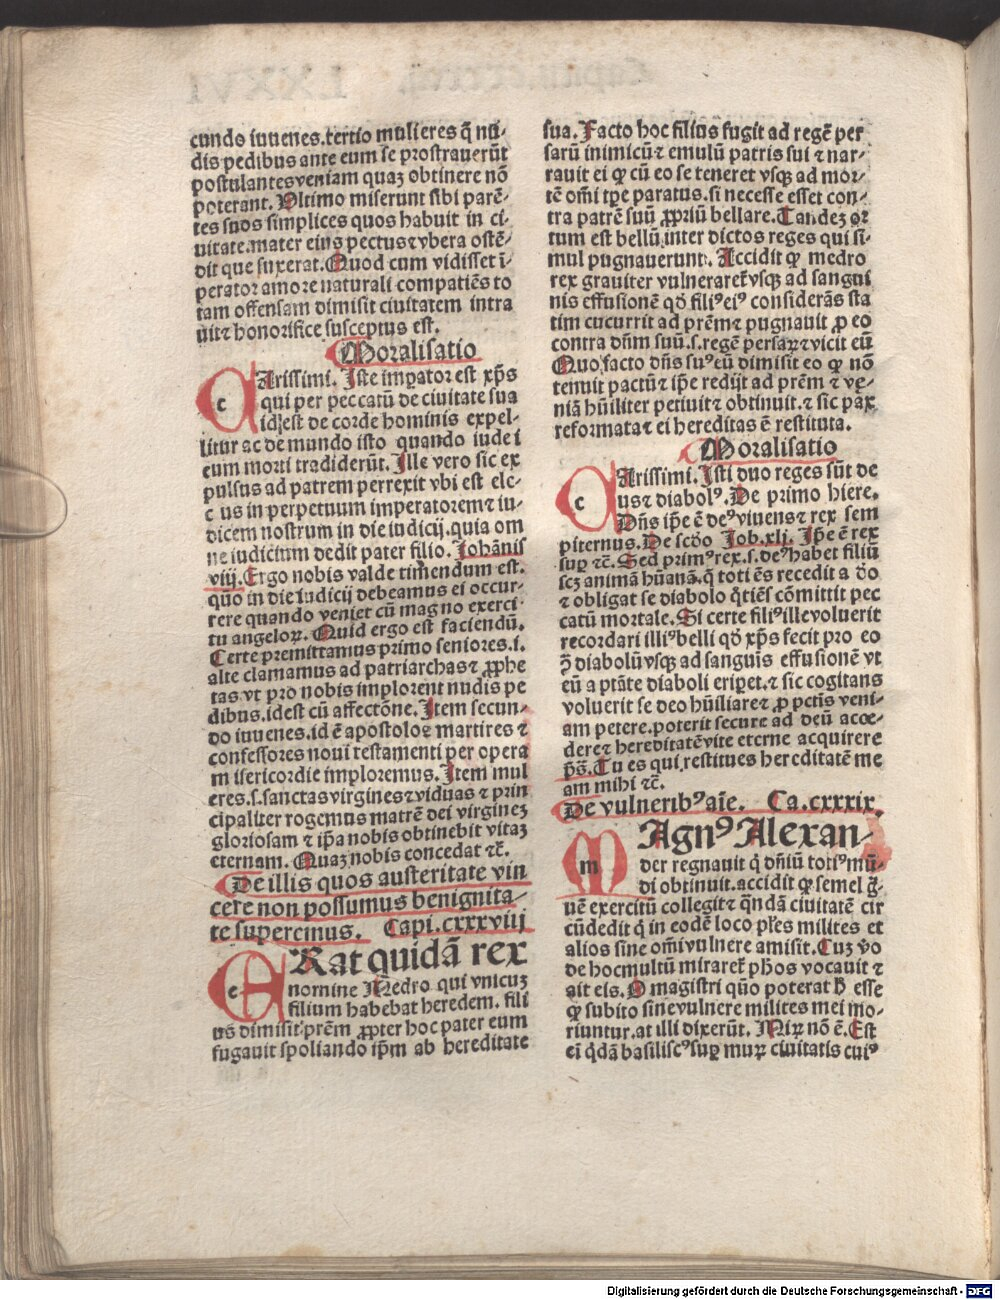 cundo iuuenes.tertio mulieres q̄ nu-
dis pedibus ante eum se prostrauerūt
postulantes veniam quaꝫ obtinere nō
poterant. Ultimo miserunt sibi parē-
tes suos simplices quos habuit in ci-
uitate.mater eius pectus ⁊ vbera ostē-
dit que suxerat. Quod cum vidisset ī-
perator amore naturali compatiēs to
tam offensam dimisit ciuitatem intra
uit ⁊ honorifice susceptus est.
Moralisatio
CArissimi. Iste impator est xp̄s
qui per peccatū de ciuitate sua
id|est de corde hominis expel-
litur ac de mundo isto quando iude i
eum morti tradiderūt. Ille vero sic ex
pulsus ad patrem perrexit vbi est ele-
c us in perpetuum imperatorem ⁊ iu-
dicem nostrum in die iudicij.quia om
ne iudicium dedit pater filio. Johānis
viij. Ergo nobis valde timendum est.
quo in die iudicij debeamus ei occur-
rere quando veniet cū mag no exerci-
tu angeloꝝ. Quid ergo est faciendū.
Certe premittamus primo seniores.i.
alte clamamus ad patriarchas ⁊ ꝓphe
tas vt pro nobis implorent nudis pe
dibus.id est cū affectōne. Item secun-
do iuuenes.id ē apostoloꝝ martires ⁊
confessores noui testamenti per opera
m isericordie imploremus. Item mul
eres.s.sanctas virgines ⁊ viduas ⁊ prin
cipaliter rogemus matrē dei virgineꝫ
gloriosam ⁊ ip̄a nobis obtinebit vitaꝫ
eternam. Quaꝫ nobis concedat ⁊c̄.
De illis quos austeritate vin
cere non possumus benignita-
te supercinus. Capi.cxxxviij
ERat quidā rex
nomine Medro qui vnicuꝫ
filium habebat heredem. fili
us dimisit prēm ꝓpter hoc pater eum
fugauit spoliando ip̄m ab hereditate
sua. Facto hoc filius fugit ad regē per
sarū inimicū ⁊ emulū patris sui ⁊ nar-
rauit ei ꝙ cū eo se teneret vsqꝫ ad mor-
tē om̄i tp̄e paratus.si necesse esset con-
tra patrē suū ꝓpriū bellare. Tandeꝫ or
tum est bellū inter dictos reges qui si-
mul pugnauerunt. Accidit ꝙ medro
rex grauiter vulneraret᷑ vsqꝫ ad sangui
nis effusionē qd̄ filiꝰ eiꝰ considerās sta
tim cucurrit ad prēm ⁊ pugnauit ꝓ eo
contra dn̄m suū.s.regē persaꝝ ⁊ vicit eū
Quo facto dn̄s suꝰ eū dimisit eo ꝙ nō
tenuit pactū ⁊ ip̄e redijt ad prēm ⁊ ve-
niā hūiliter petiuit ⁊ obtinuit.⁊ sic pax
reformata ⁊ ei hereditas ē restituta.
Moralisatio
CArissimi. Isti duo reges sūt de
us ⁊ diabolꝰ. De primo hiere.
Dn̄s ip̄e ē deꝰ viuens ⁊ rex sem
piternus. De scd̄o Job.xlj. Ip̄e ē rex
suꝑ ⁊c̄. Sed primꝰ rex.s.deꝰ habet filiū
scꝫ animā hūanā.q̄ toti ēs recedit a do
⁊ obligat se diabolo q̄tiēs cōmittit pec
catū mortale. Si certe filiꝰ ille voluerit
recordari illiꝰ belli qd̄ xp̄s fecit pro eo
ↄ̄ diabolū vsqꝫ ad sanguis effusionē vt
eū a ptāte diaboli eriꝑet.⁊ sic cogitans
voluerit se deo hūiliare ⁊ ꝓ pctīs veni-
am petere.poterit secure ad deū acce-
dere ⁊ hereditatē vite eterne acquirere
p̄s̄. Tu es qui restitues hereditatē me
am mihi ⁊c̄.
De vulneribꝰ aīe. Ca.cxxxix.
MAgnꝰ Alexan-
der regnauit q̄ dn̄iū totiꝰ mū-
di obtinuit.accidit ꝙ semel g̃-
uē exercitū collegit ⁊ qn̄dā ciuitatē cir
cūdedit q̄ in eodē loco pl̄es milites et
alios sine om̄i vulnere amisit. Cuꝫ v̄o
de hoc multū miraret᷑ ph̄os vocauit ⁊
ait eis. O magistri quō poterat h̄ esse
ꝙ subito sine vulnere milites mei mo-
riuntur.at illi dixerūt. Miꝝ nō ē. Est
ei q̄dā basiliscꝰ suꝑ muꝝ ciuitatis cuiꝰ
Digitalisierung gefördert durch die Deutsche Forschungsgemeinschaft - DFG